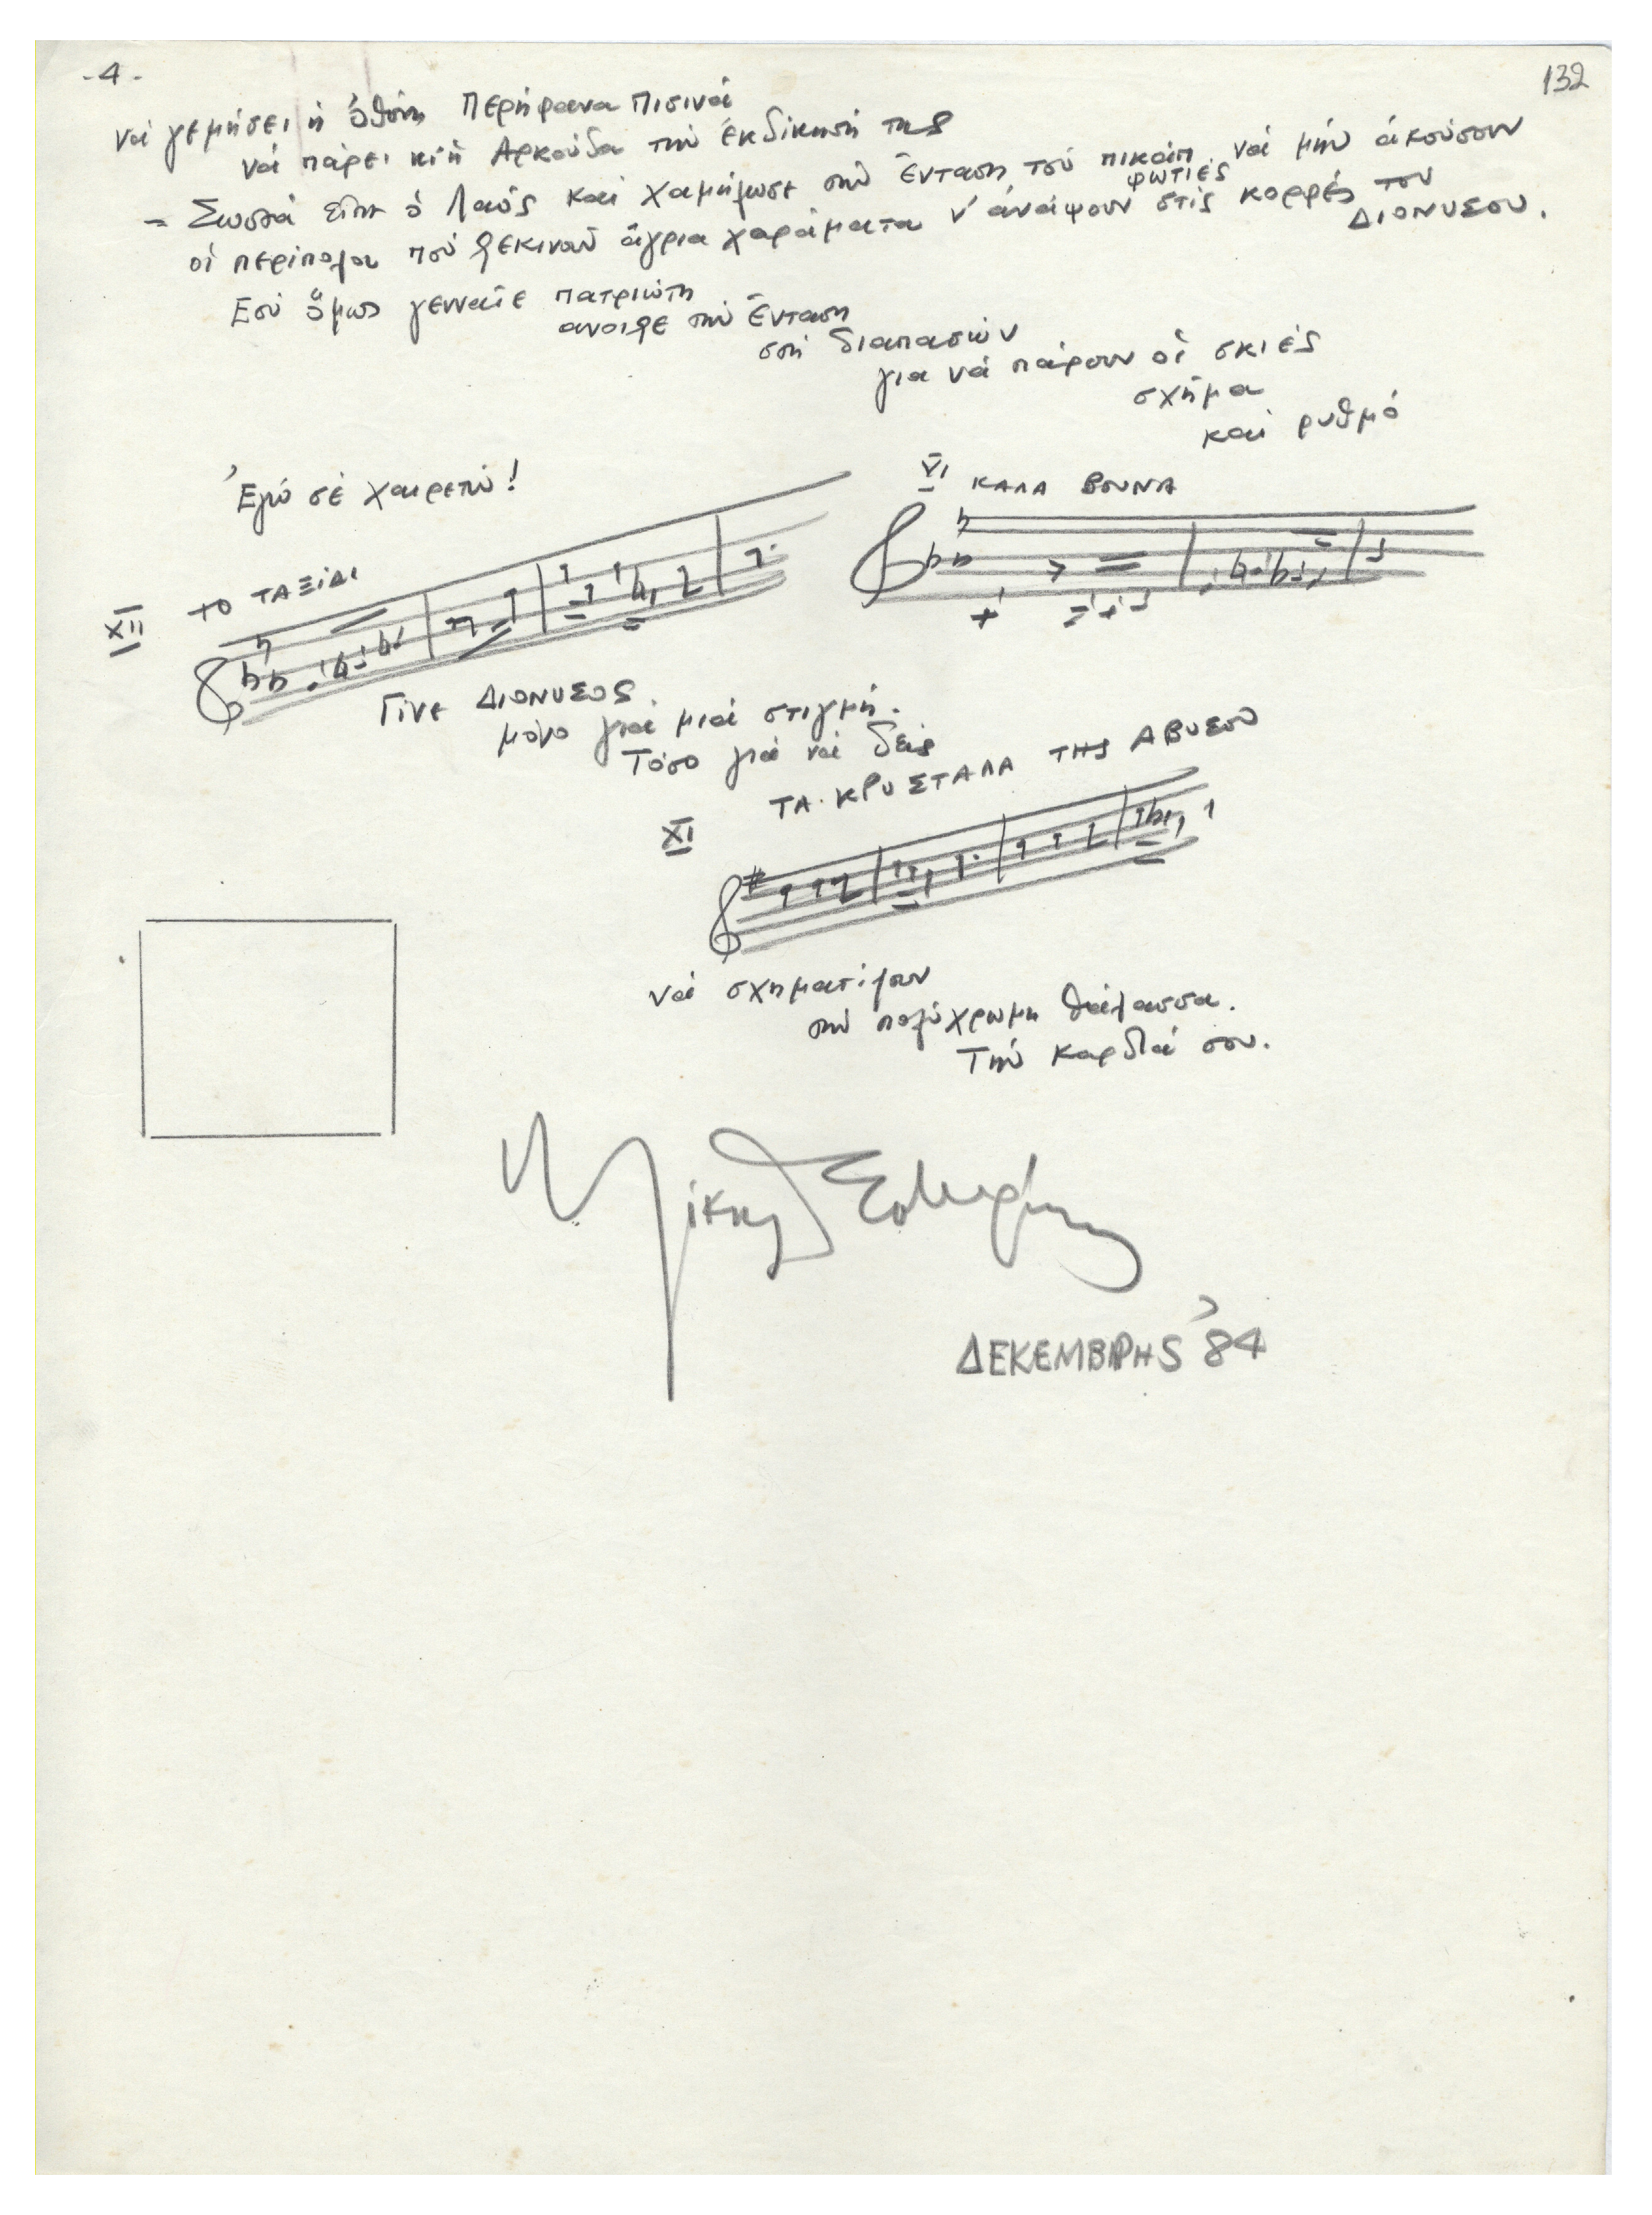 - 4 -
132
νά γεμήσει ἡ ὀθόνη Περήφανα Πισινά
νά πάρει κι ἡ Αρκούδα τήν ἐκδίκησή της
- Σωστά εἶπε ὁ Λαός καί χαμήλωσε τήν ἔνταση τοῦ πικάπ νά μήν ἀκούσουν
οἱ περίπολοι πού ξεκινοῦν ἄγρια χαράματα ν' ἀνάψουν φωτιές στίς κορφές του
ΔΙΟΝΥΣΟΥ.
Εσύ ὅμως γενναῖε πατριώτη
ανοιξε τήν ἔνταση
στή διαπασών
για νά πάρουν οἱ σκιές
σχῆμα
καί ρυθμό
Ἐγώ σέ χαιρετώ!
VI ΚΑΛΑ ΒΟΥΝΑ
XII ΤΟ ΤΑΞΙΔΙ
Γίνε ΔΙΟΝΥΣΟΣ.
μόνο γιά μιά στιγμή.
Τόσο γιά νά δεῖς
XI ΤΑ ΚΡΥΣΤΑΛΑ ΤΗΣ ΑΒΥΣΟΥ
νά σχηματίζουν
τήν πολύχρωμη θάλασσα.
Τήν καρδιά σου.
Μίκης Θεοδωράκης
ΔΕΚΕΜΒΡΗΣ '84